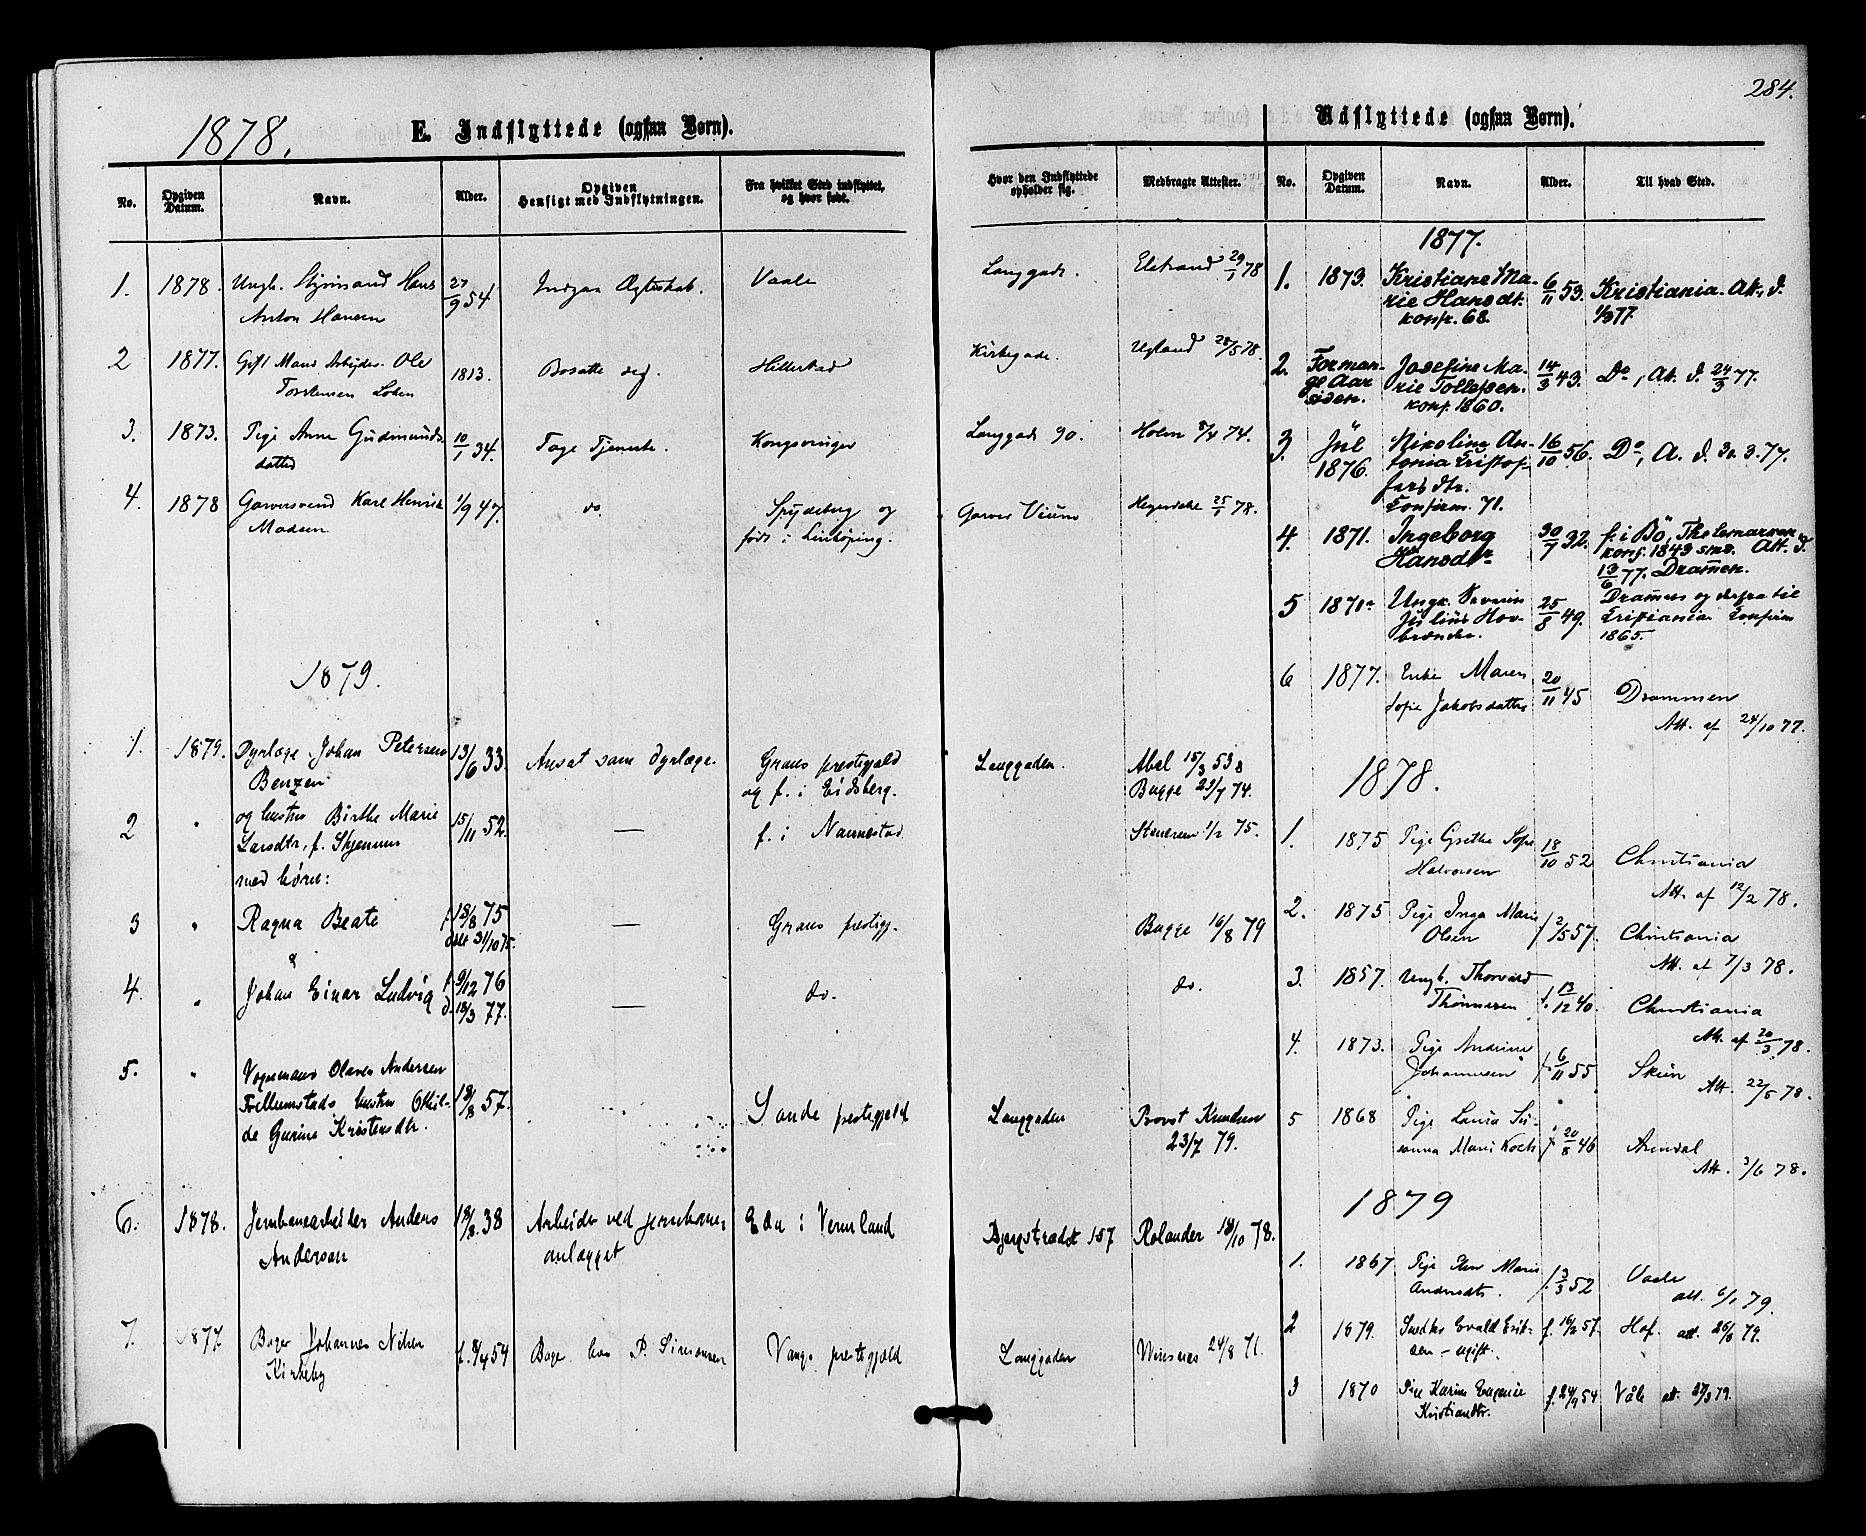 284.
1878.
E. Indflyttede (ogsaa Børn).
No.
Opgiven Datum.
Navn.
Alder.
Opgiven Hensigt med Indflytningen.
Fra hvilket Sted indflyttet, og hvor født.
Hvor den Indflyttede opholder sig.
Medbragte Attester.
1. 1878. Ungk. Styrmand Hans 27/9 54 Indgaa Ægteskab. Vaale Langgade. Elstrand 29/1 78
Anton Hansen
2 1877. Gift Mand Arbejder Ole 1813. Bosætte sig. Hillestad Kirkegade. Ugland 28/5 78.
Torstensen
3. 1873. Pige Anne Gudmunds- 10/1 34. Tage Tjeneste. Kongsvinger Langgade 90. Holm 74.
datter
4. 1878 Garversvend Karl Henrik 1/9 47. do. Spydeberg og Garver 25/1 78.
Madsen født i Linköping.
1879.
1. 1879. Dyrlæge Johan Petersen 13/6 33. Ansat som dyrlæge. Grans prestegjeld Langgaden. Abel 15/3 53 &
Benzen og f. i Eidsberg. Bugge 23/7 74.
2 " og hustru Birthe Marie 15/11 52. — f. i 1/2 75.
Larsdtr, f.
med børn:
3 " Ragna Beate f. 18/8 75 — Grans prestgj. Bugge 16/8 79
døbt 31/10 75.
&
4. " Johan Einar Ludvig f. 9/12 76 — do. do.
d. 18/3 77.
5. " Vognmand Olaves Andersen
hustru Othil- 18/8 57. Sande prestegjeld Langgaden Provst Knudsen
de Gurine Kristensdtr. 23/7 79.
6. 1878. Jernbanearbeider Anders 18/8 38 Arbeide ved jernbane Eda i Vermland Bjergstrædet 157 Rolander 18/10 78.
Anderson anlægget
7. 1877. Bager Johannes Nilsen f. 54 Bager hos P. Simonsen Vangs prestegjeld Langgaden 24/8 71.
Kirkeby
Udflyttede (ogsaa Børn).
No.
Opgiven Datum.
Navn.
Alder.
Til hvad Sted.
1877.
1. 1873. Kristiane Ma- 6/11 53. Kristiania. Att. d.
rie Hansdt. 1/3 77.
konf. 68.
2. Forman- Josefine Ma- 14/3 43. Do, At. d. 24/3 77.
ge Aar rie Tollefsen.
siden. konf. 1860.
3. Jul Nikoline An- 16/10 56. Do, A. d. 3. 77.
1876. tonia Cristof-
fersdtr.
Confirm. 71.
4. 1871. Ingeborg 30/7 32. f. i Bö, Thelemarken
Hansdtr konf. 1849 Att. d.
13/6 77. Drammen.
5 1870 Ungk. Severin 25/8 49. Drammen og derfra til
Julius Hov- Cristiania Confirm
brender. 1865.
6 1877. Enke Maren 20/11 45 Drammen
Sofie Jakobsdatter Att. af 24/10 77.
1878.
1. 1875 Pige Grethe Sofie 18/10 52 Christiania
Halvorsen Att. af 12/2 78.
2. 1875 Pige Inga Marie f. 2/5 57. Christiania
Olsen Att. af 7/3 78.
3. 1857. Ungk. Thorvard f. 13/12 40. Christiania
Thønnesen Att. af 20/3 78.
4. 1873. Pige Andrine f. 6/11 55 Skien
Johannesen Att. 22/5 78.
5 1868 Pige Laura Su- f. 20/8 46 Arendal
sanna Marie Koch Att. 3/6 78.
1879
1. 1867 Pige Marie f. 3/3 52 Vaale
Andersdtr. att. 6/1 79.
2 1879. Snedker Evald Erik- f. 57. Hof. att. 79.
sen - ugift.
3 1870 Pige Karine Eugenie f. 24/9 54 Våle att. 79.
Kristiansdtr.